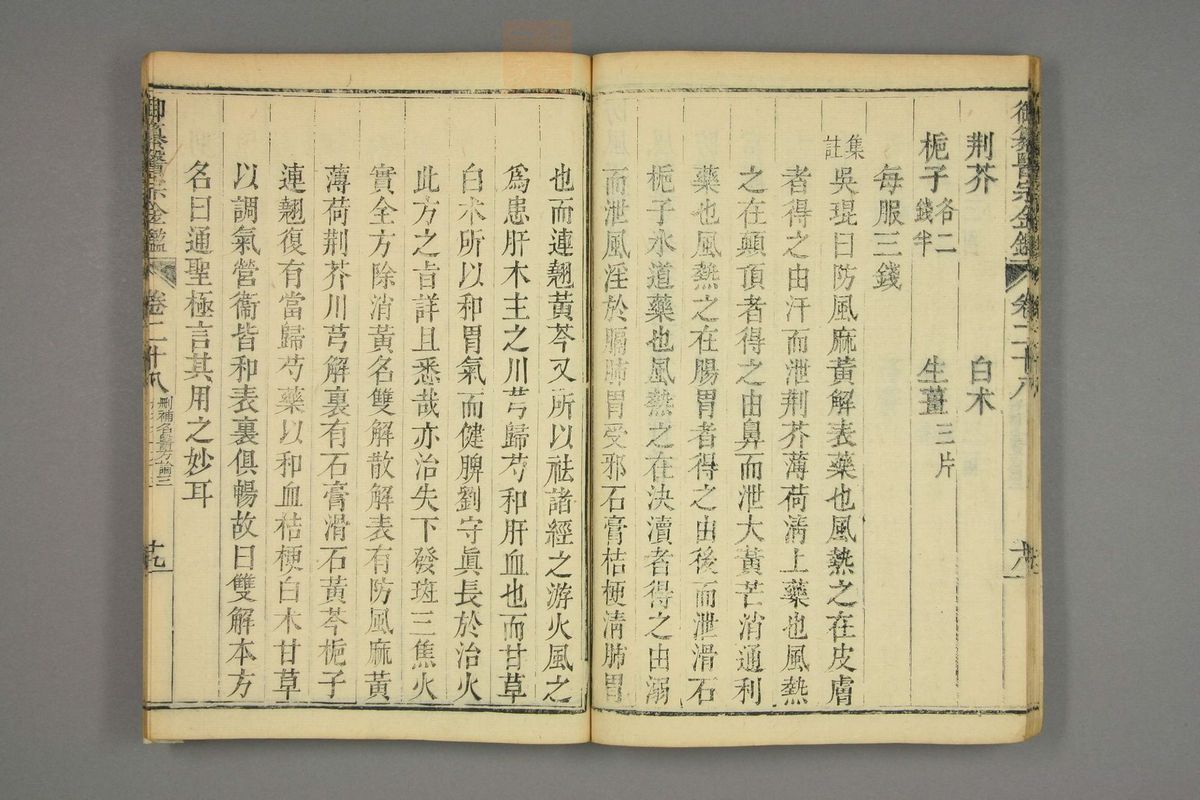 荆芥　白术
梔子各二錢半　生薑三片
每服三錢
集註吳琨曰防風麻黃解表藥也風熱之在皮膚
者得之由汗而泄荆芥薄荷清上藥也風熱
之在顛頂者得之由鼻而泄大黃芒消通利
藥也風熱之在腸胃者得之由後而泄滑石
梔子水道藥也風熱之在決瀆者得之由溺
而泄風淫於膈肺胃受邪石膏桔梗清肺胃
也而連翹黃芩又所以祛諸經之游火風之
爲患肝木主之川芎歸芍和肝血也而甘草
白术所以和胃氣而健脾劉守眞長於治火
此方之旨詳且悉哉亦治失下發斑三焦火
實全方除消黃名雙解散解表有防風麻黃
薄荷荆芥川芎解裏有石膏滑石黃芩梔子
連翹復有當歸芍藥以和血桔梗白术甘草
以調氣營衞皆和表裏俱暢故曰雙解本方
名曰通聖極言其用之妙耳
御纂醫宗金鑑
卷二十八
刪補名醫方論三
十九